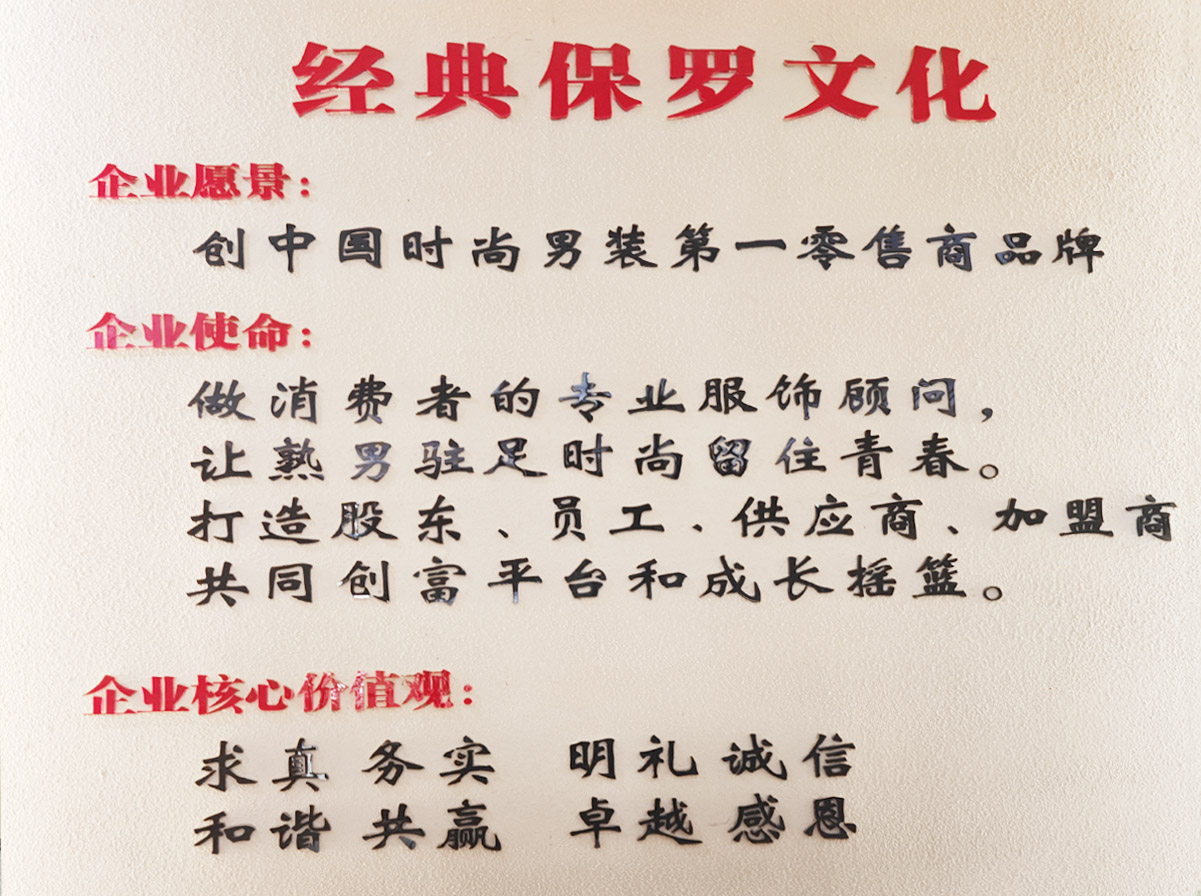 经典保罗文化
企业愿景：
创中国时尚男装第一零售商品牌
企业使命：
做消费者的专业服饰顾问，
让熟男驻足时尚留住青春。
打造股东、员工、供应商、加盟商
共同创富平台和成长摇篮。
企业核心价值观：
求真 务实 明礼 诚信
和谐 共赢 卓越 感恩